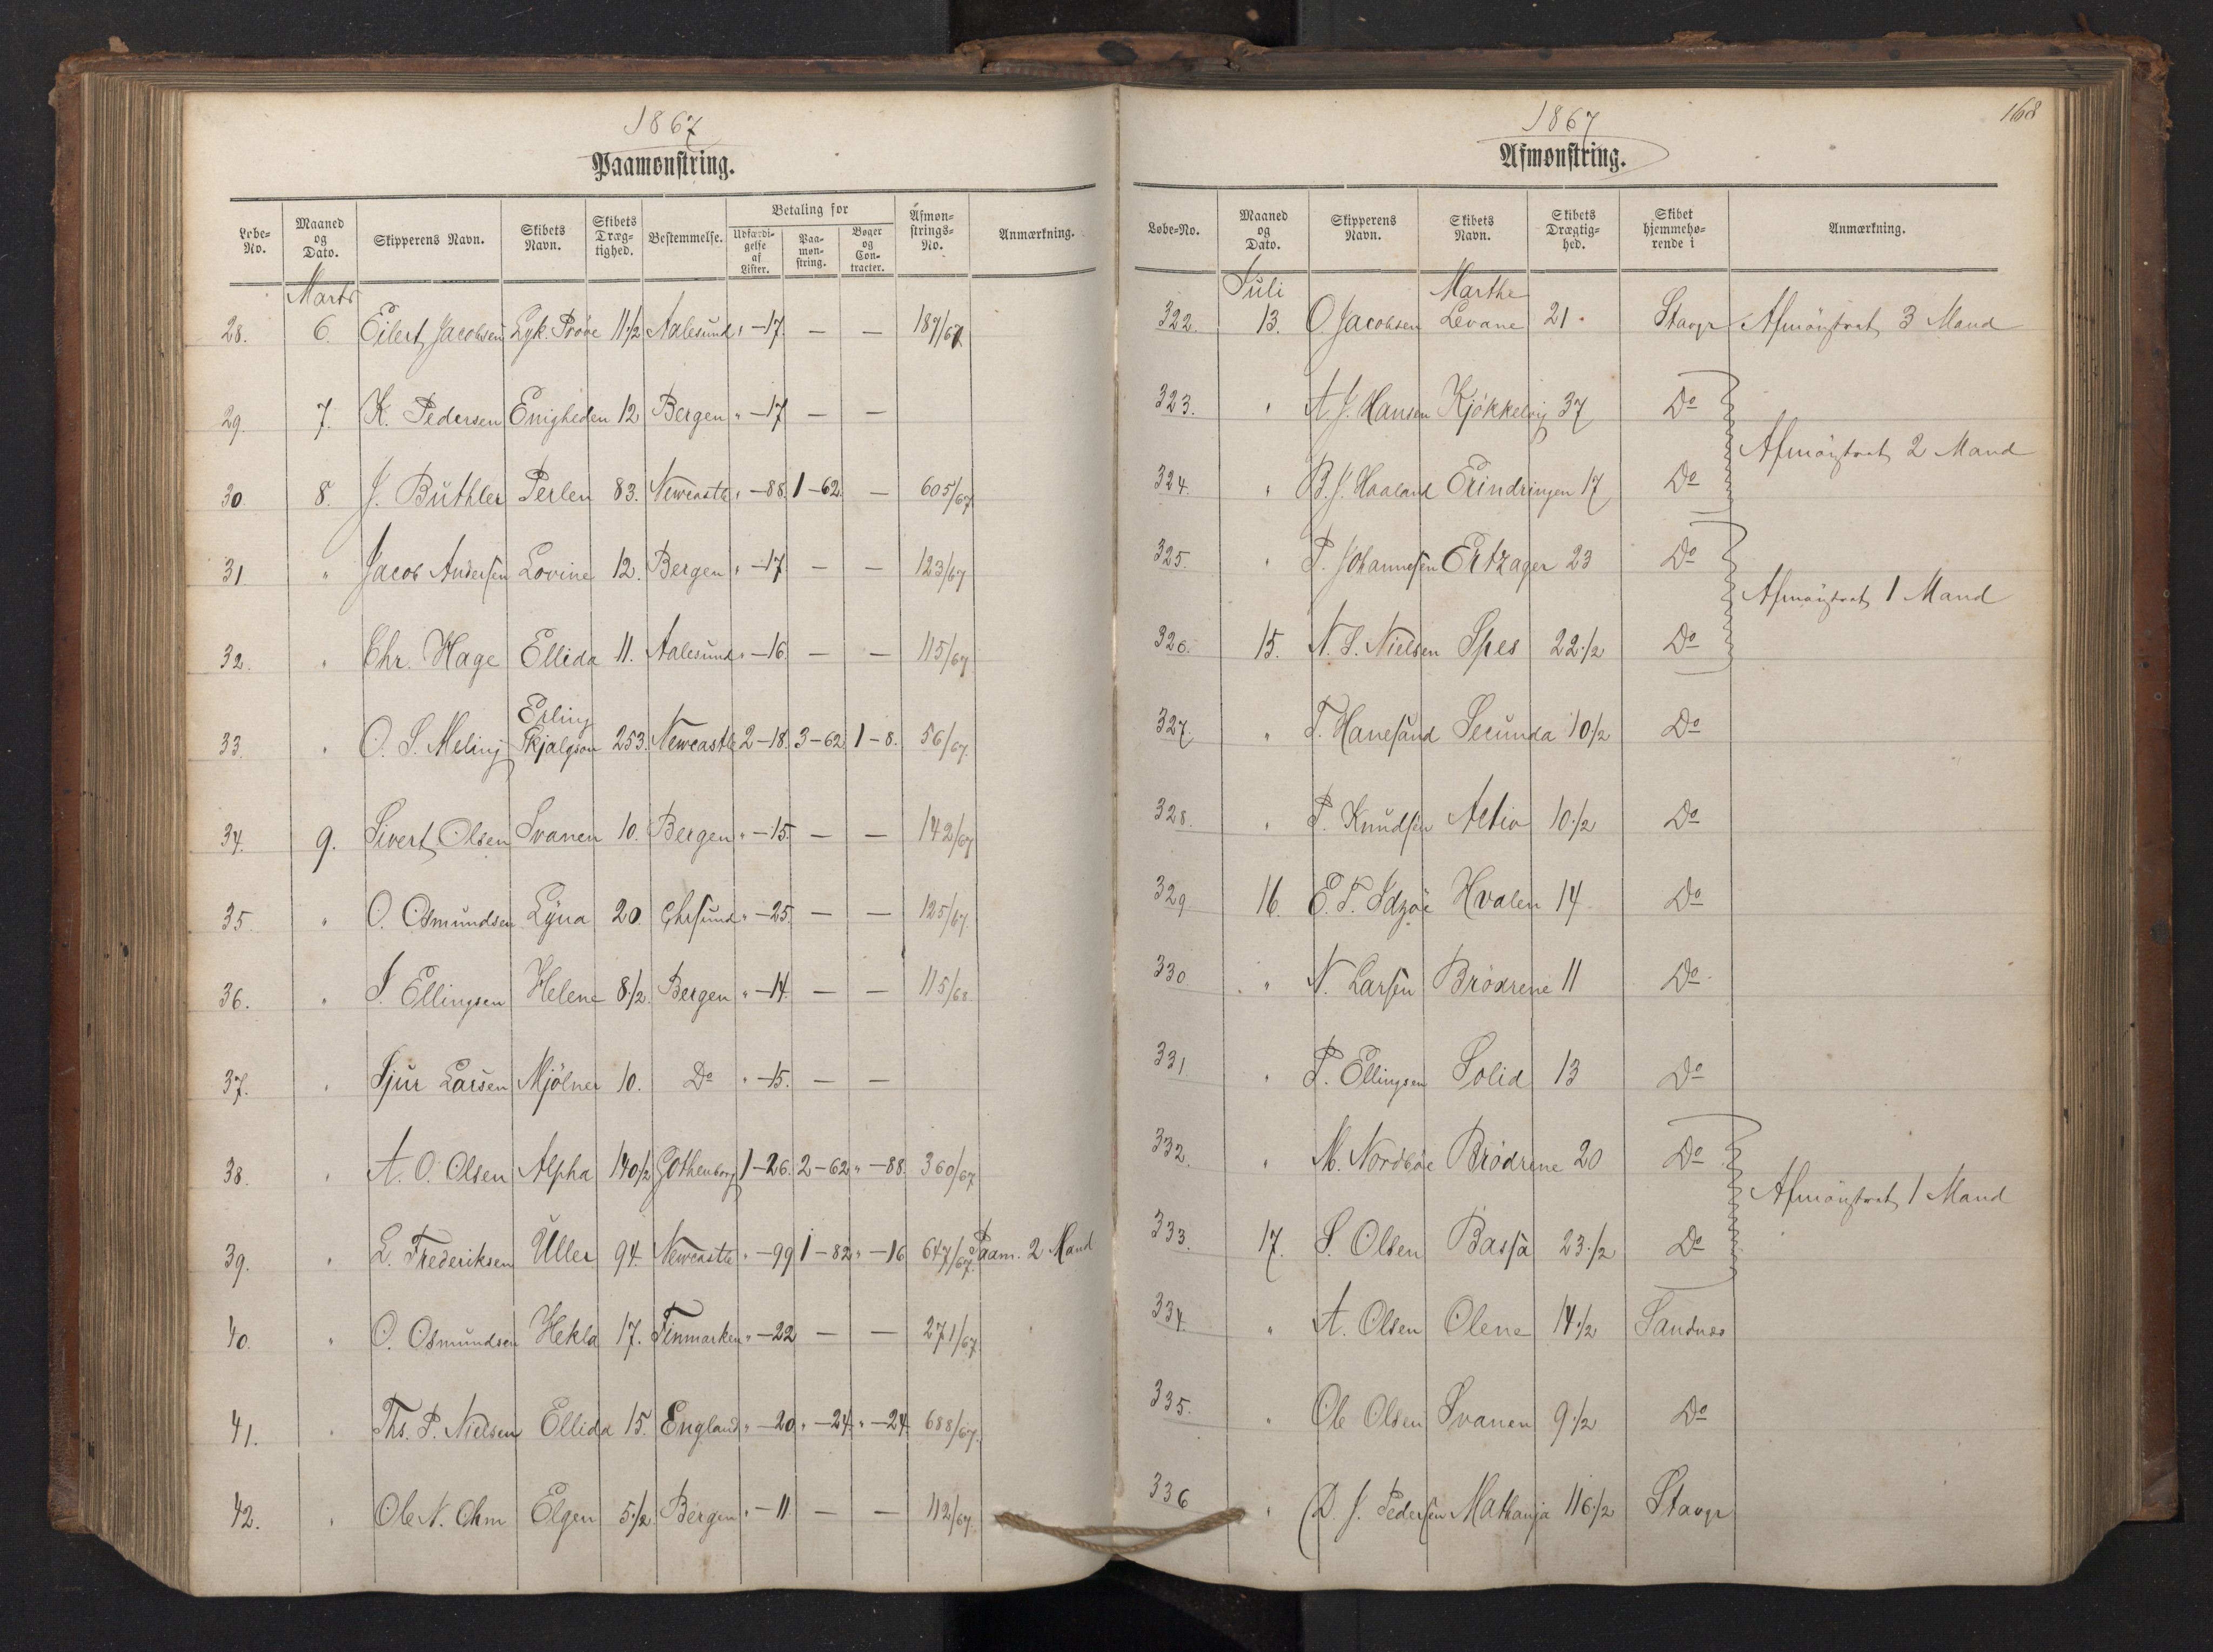 1867
Paamønstring.
Løbe-No. Maaned og Dato. Skipperens Navn. Skibets Navn. Skibets Drægtighed. Bestemmelse. Betaling for Udfærdigelse af Lister. Paamønstring. Bøger og Contracter. Afmønstrings-No. Anmærkning.
Marts
28. 6. Eilert Jacobsen Lyk. Prøve 11 1/2 Aalesund " -17. — — 187/67
29. 7. K. Pedersen Enigheden 12 Bergen " -17 — —
30. 8. J. Büthler Perlen 83. Newcastle " -88. 1-62. — 605/67
31. " Jacob Andersen Lovine 12. Bergen " -17. — — 123/67
32. " Chr. Hage Ellida 11. Aalesund " -16. — — 115/67
33. " O. S. Meling Erling Skjalgson 253. Newcastle 2-18. 3-62 1-8. 56/67.
34. 9. Sivert Olsen Svanen 10. Bergen " -15. — — 142/67
35. " O. Osmundsen Lyna 20. Chrsund " -25. — — 125/67.
36. " J. Ellingsen Helene 8 1/2. Bergen " -14. — — 115/68
37. " Sjur Larsen Mjölner 10. Do " -15. — —
38. " A. O. Olsen Alpha 140 1/2 Gothenborg 1-26. 2-62 " -88. 360/67
39. " L. Frederiksen Uller 94. Newcastle " -99 1-82 " -16 647/67. Paam. 2 Mand
40. " O. Osmundsen Hekla 17. Finmarken " -22 — — 271/67.
41. " Ths. P. Nielsen Ellida 15. England " -20 " -24. " -24. 688/67.
42. " Ole N. Ohm Elgen 5 1/2. Bergen " -11. — — 112/67.
168
1867
Afmønstring.
Løbe-No. Maaned og Dato. Skipperens Navn. Skibets Navn. Skibets Drægtighed. Skibet hjemmehørende i Anmærkning.
Juli
322. 13. O. Jacobsen Marthe Levane 21. Stavgr Afmönstret 3 Mand
323. " A. J. Hansen Kjökkelvig 37 Do
Afmönstret 2 Mand
324. " B. J. Haaland Erindringen 17 Do
325. " P. Johannesen Ertzager 23 Do
Afmönstret 1 Mand
326. 15. N. S. Nielsen Spes 22 1/2 Do
327. " T. Hanesand Secunda 10 1/2 Do
328. " P. Knudsen Activ 10 1/2 Do
329. 16. E. T. Idzöe Hvalen 14 Do
330. " N. Larsen Brödrene 11 Do
331. " P. Ellingsen Solid 13 Do
332. " M. Nordböe Brödrene 20 Do
Afmönstret 1 Mand
333. 17. S. Olsen Bassa 23 1/2 Do
334. " A. Olsen Olene 14 1/2 Sandnes
335. " Ole Olsen Svanen 9 1/2 Do
336 " D. J. Pedersen Mathanja 116 1/2 Stavgr